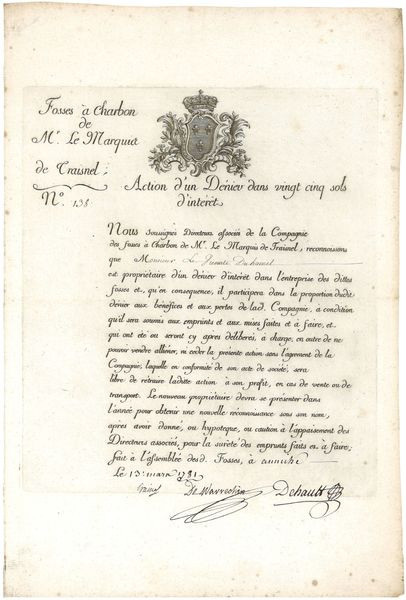 Fosses à Charbon
de
Mr. Le Marquis
de Traisnel;
No. 138
Action d'un Dénier dans vingt cinq sols
d'interêt.
Nous Soussignés Directeurs associés de la Compagnie
des fosses à Charbon de Mr. Le Marquis de Traisnel, reconnoissons
que Monsieur Le Duhamel
est propriétaire d'un dénier d'intérêt dans l'entreprise des dittes
fosses et, qu'en conséquence, il participera dans la proportion dudit
dénier aux bénéfices et aux pertes de lad. Compagnie, à condition
qu'il sera soumis aux emprunts et aux mises faites et à faire, et
qui ont été ou seront cy après délibérés, à charge, en outre de ne
pouvoir vendre alliéner, ni céder la présente action sans l'agrément de la
Compagnie; laquelle en conformité de son acte de société, sera
libre de retraire laditte action à son profit, en cas de vente ou de
transport. Le nouveau propriétaire devra se présenter dans
l'année pour obtenir une nouvelle reconnoissance sous son nom,
après avoir donné, ou hypoteque, ou caution à l'appaisement des
Directeurs associés, pour la sureté des emprunts faits et à faire;
fait à l'assemblée desd. Fosses, à aniche
Le 13 mars 1781
De Warrechin Dehault